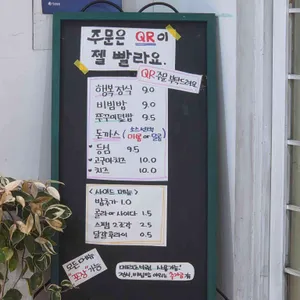 주문은 QR이
젤 빨라요.
QR주문 부탁드려요
행복정식 9.0
비빔밥 9.0
쭈꾸미덮밥 9.5
돈까스
등심 9.5
고구마치즈 10.0
치즈 10.0
<사이드 메뉴>
밥추가 1.0
콜라 or 사이다 1.5
스팸 2조각 2.5
달걀후라이 0.5
모든 메뉴
포장 가능